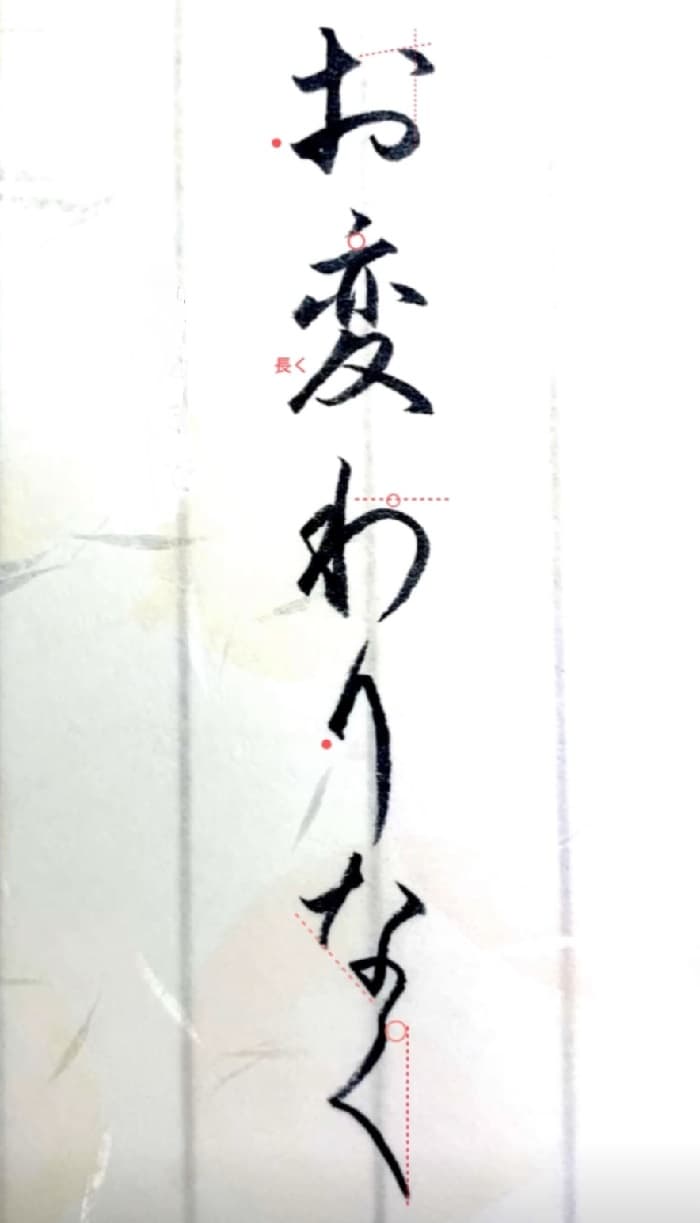 お変わりなく
長く